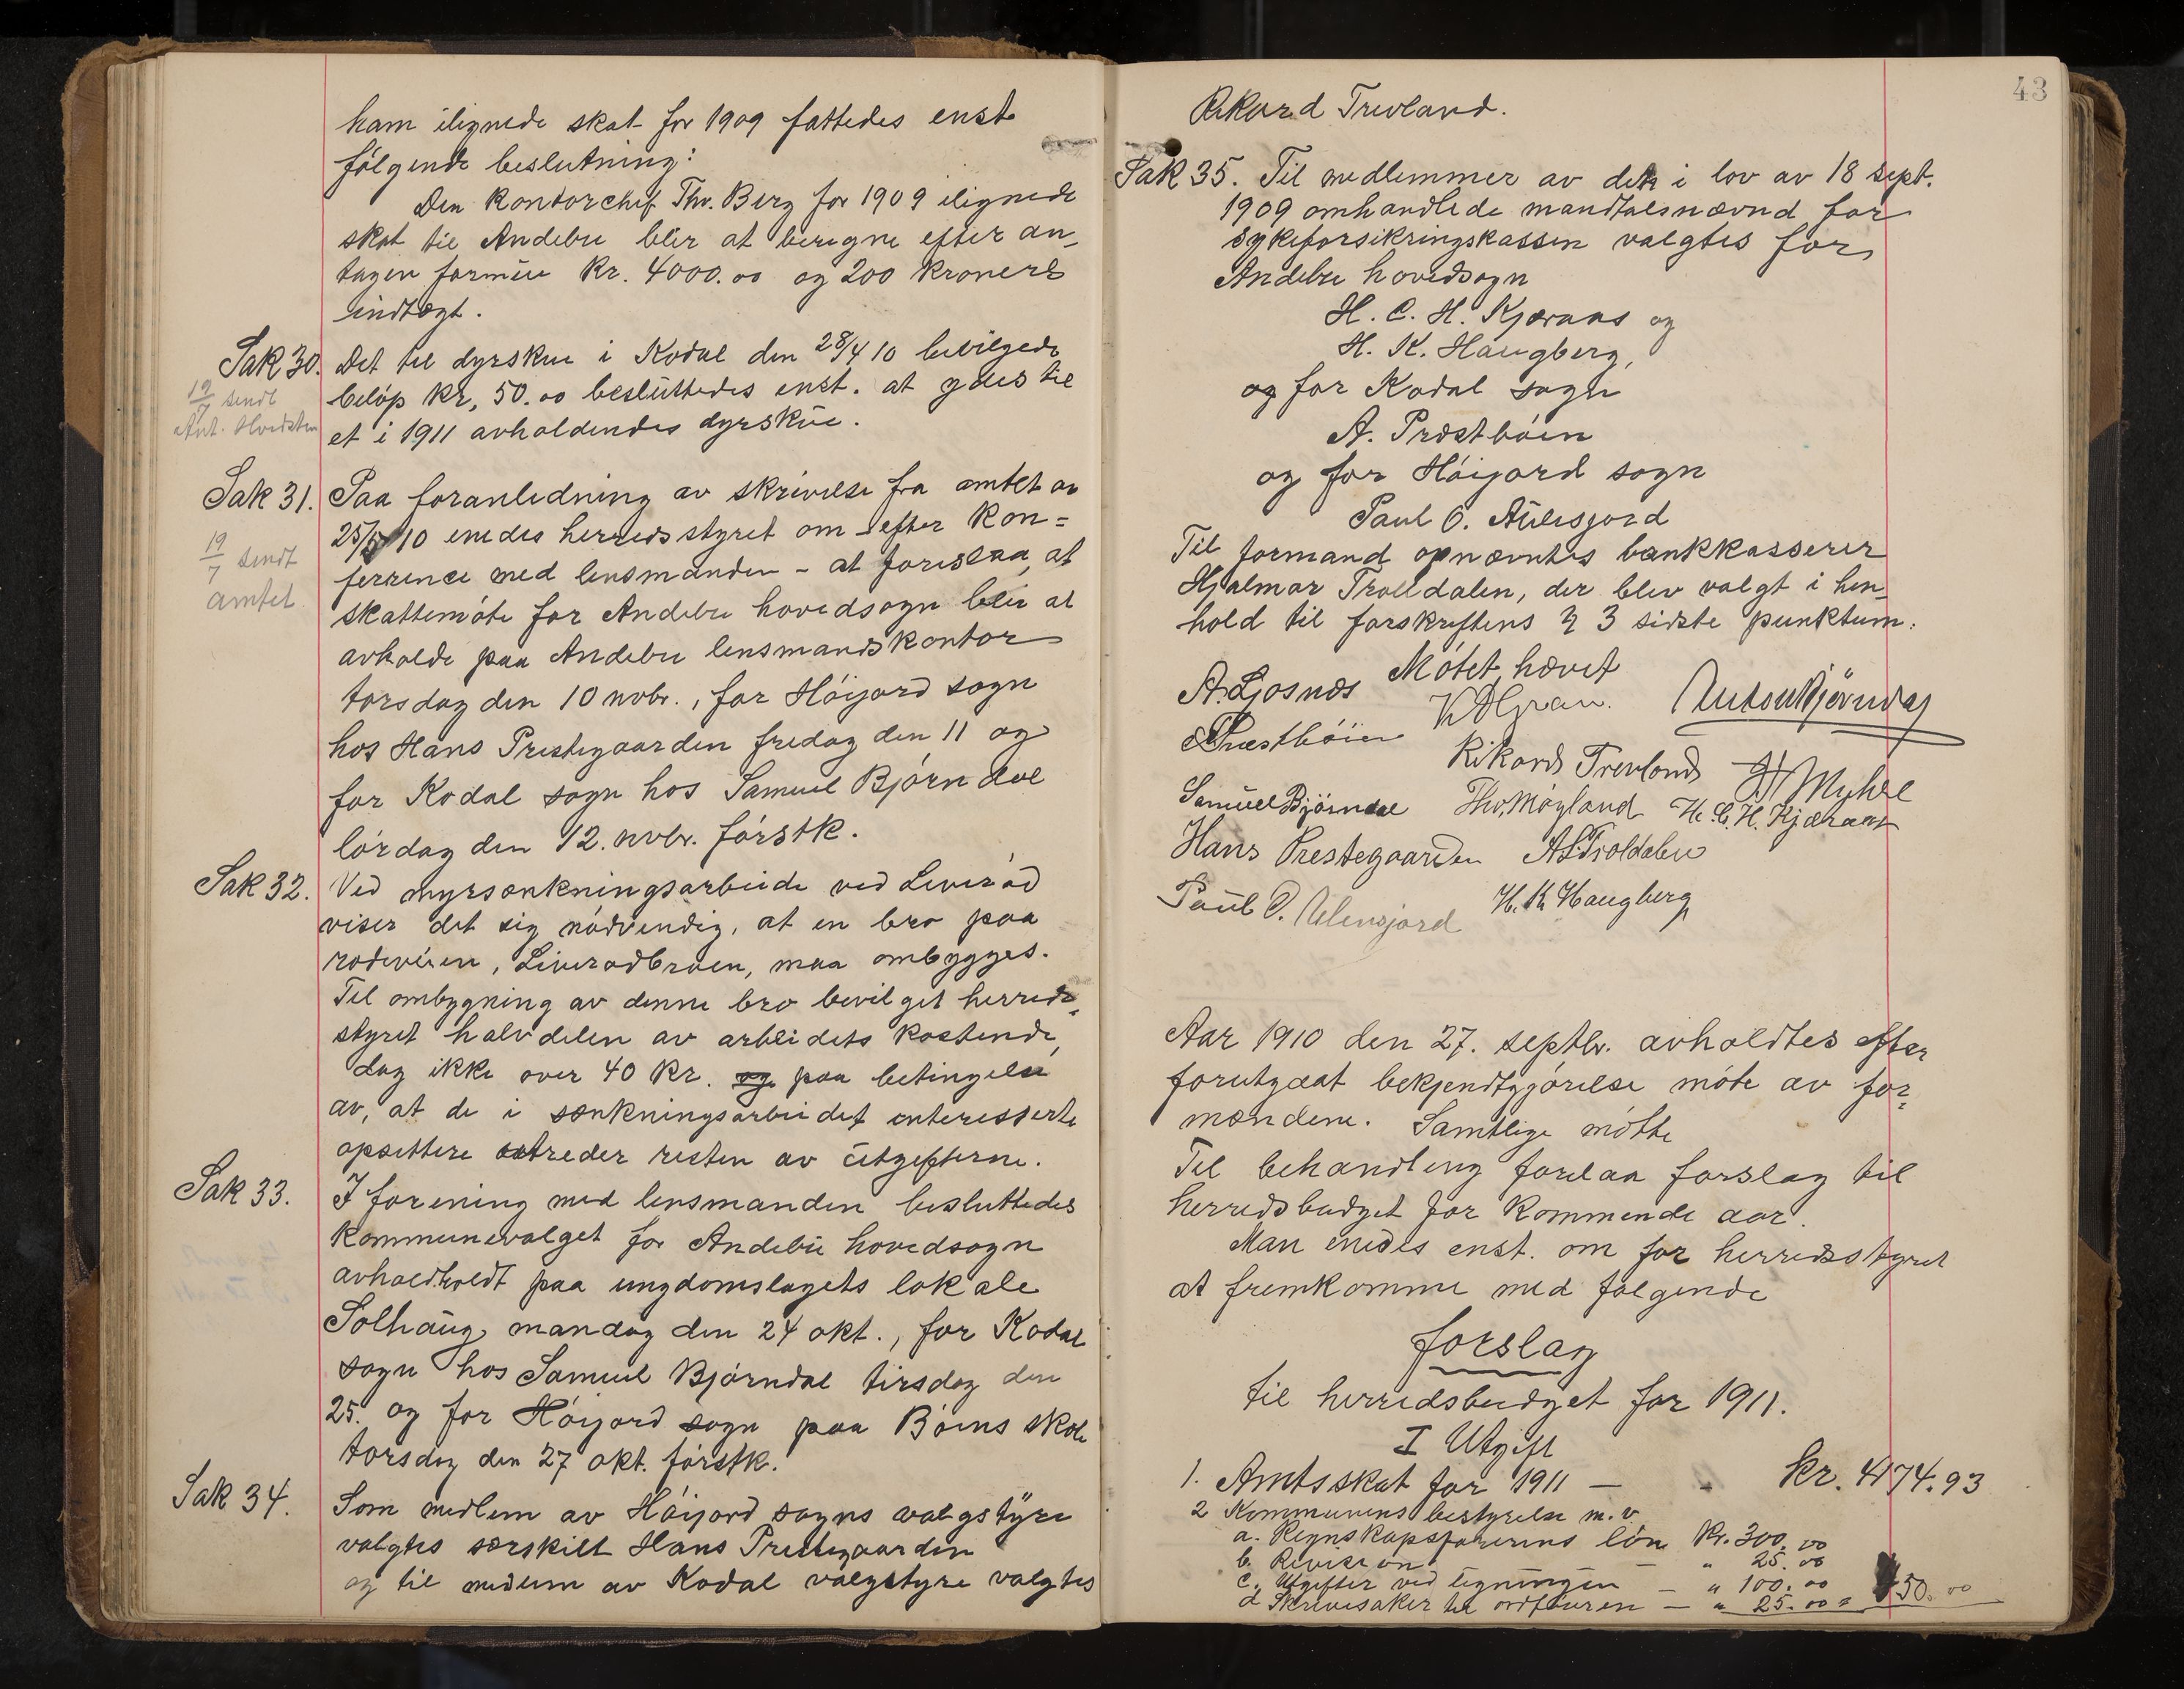 ham ilignede skat for 1909 fattedes enst.
følgende beslutning:
Den Kontorchef Thv. Berg for 1909 ilignede
skat til Andebu blir at beregne efter an-
tagen formue Kr. 4000.00 og 200 kroners
indtægt.
Sak 30. Det til dyrskue i Kodal den 28/4 10 bevilgede
beløp Kr. 50.00 besluttedes enst. at ydes til
et i 1911 avholdendes dyrskue.
19/7 sendt
Ant. Hvidsten
Sak 31. Paa foranledning av skrivelse fra amtet av
25/5 10 enedes herredsstyret om - efter Kon=
ferrence med lensmanden - at foreslaa, at
skattemøte for Andebu hovedsogn blir at
avholde paa Andebu lensmandskontor
torsdag den 10 novbr., for Höijord sogn
hos Hans Prestegaarden fredag den 11 og
for Kodal sogn hos Samuel Bjørndal
lördag den 12. novbr. førstk.
19/7 sendt
amtet.
Sak 32. Ved myrsænkningsarbeide ved Liverød
viser det sig nödvendig, at en bro paa
rodeveien, Liverødbroen, maa ombygges.
Til ombygning av denne bro bevilget herreds-
styret halvdelen av arbeidets kostende,
dog ikke over 40 Kr. og paa betingelse
av, at de i sænkningsarbeidet interesserte
opsittere utreder resten av utgifterne.
Sak 33. I forening med lensmanden besluttedes
Kommunevalget for Andebu hovedsogn
avholdtholdt paa ungdomslagets lokale
Solhaug mandag den 24 okt., for Kodal
sogn hos Samuel Bjørndal tirsdag den
25. og for Höijord sogn paa Böens skole
torsdag den 27 okt. førstk.
Sak 34. Som medlem av Höijord sogns valgstyre
valgtes særskilt Hans Prestegaarden
og til medlem av Kodal valgstyre valgtes
43
Rikard Trevland.
Sak 35. Til medlemmer av den i lov av 18 sept.
1909 omhandlede mandtalsnævnd for
sykeforsikringskassen valgtes for
Andebu hovedsogn
H. C. H. Kjæraas og
H. K. Haugberg,
og for Kodal sogn
A. Præstbøen
og for Höijord sogn
Paul O. Aulesjord
Til formand opnævntes bankkasserer
Hjalmar Trolldalen, der blev valgt i hen-
hold til forskriftens § 3 sidste punktum.
Mötet hævet
A. Gjosnæs Anton Bjørndal
A Præstbøen Rikard Trevland Myhre
Samuel Bjørndal Thv. Møyland H. C. H. Kjæraas
Hans Prestegaarden A L Troldalen
Paul O. Ulensjord H. K. Haugberg
Aar 1910 den 27. septbr. avholdtes efter
forutgaat bekjendtgjørelse møte av for-
mændene. Samtlige møtte
Til behandling forelaa forslag til
herredsbudget for Kommende aar.
Man enedes enst. om for herredsstyret
at fremkomme med følgende
forslag
til herredsbudget for 1911.
I Utgift
1. Amtsskat for 1911 — " kr. 4174.93
2 Kommunens bestyrelse m. v.
a. Regnskapsførerens løn Kr. 300.00
b. Revision — " 25.00
c. Utgifter ved ligningen — " 100.00
d Skrivesaker til ordføreren — " 25.00 = 450.00